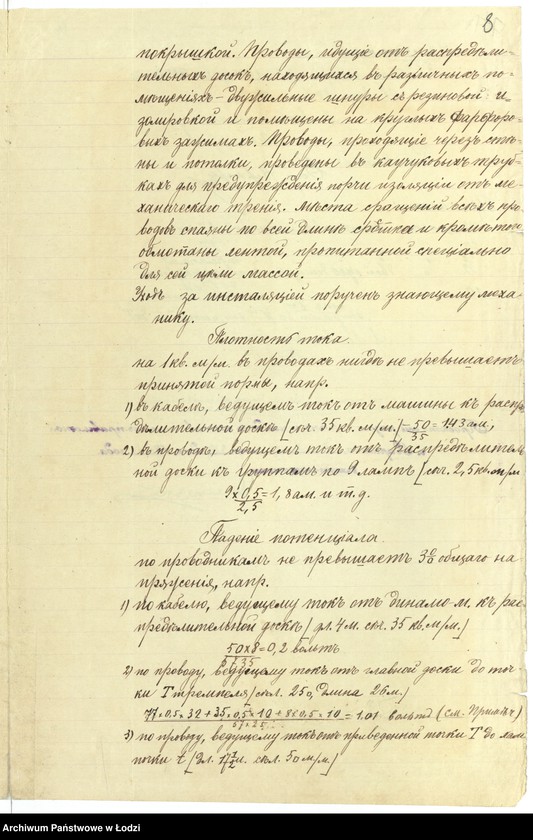 8
покрышкой. Проводы, идущіе отъ распредѣли-
тельныхъ досокъ, находящихся въ различныхъ по-
мѣщеніяхъ – двужильные шнуры съ резиновой и-
золировкой и помѣщены на круглыхъ фарфоро-
выхъ зажимахъ. Проводы, проходящіе черезъ стѣ-
ны и потолки, проведены въ каучуковыхъ труб-
кахъ для предупрежденія порчи изоляціи отъ ме-
ханическаго тренія. Мѣста сращеній всѣхъ про-
водовъ спаяны по всей длинѣ сростка и кромѣ того
обмотаны лентой, пропитанной спеціально
для сей цѣли массой.
Уходъ за инсталяціей порученъ знающему меха-
нику.
Плотность тока
на 1 кв. м/м. въ проводахъ нигдѣ не превышаетъ
принятой нормы, напр.
1) въ кабелѣ, ведущемъ токъ отъ машины къ распре
дѣлительной доскѣ [сѣч. 35 кв. м/м.] – 50/35 = 1,43 ам,
2) въ проводѣ, ведущемъ токъ отъ распредѣлитель
ной доски къ группамъ по 9 лампъ [сѣч. 2,5 кв. м/м
9 x 0,5/2,5 = 1,8 ам. и т. д.
Паденіе потенціала
по проводникамъ не превышаетъ 3% общаго на
пряженія, напр.
1) по кабелю, ведущему токъ отъ динамо-м. къ рас-
предѣлительной доскѣ [дл. 4 м. сѣч. 35 кв. м/м.]
50 x 8/57.35 = 0,2 вольтъ
2) по проводу, ведущему токъ отъ главной доски до точ-
ки Т [сѣч. 25 длина 26 м.]
77 x 0,5 x 32 + 35 x 0,5 x 10 + 8 0,5 x 10/57 x 25 = 1.01 вольтъ (см. Примѣч)
3) по проводу, ведущему токъ отъ приведенной точки Т до
точки t [дл. 17 1/2 м. сѣч. 50 м/м.]
Archiwum Państwowe w Łodzi